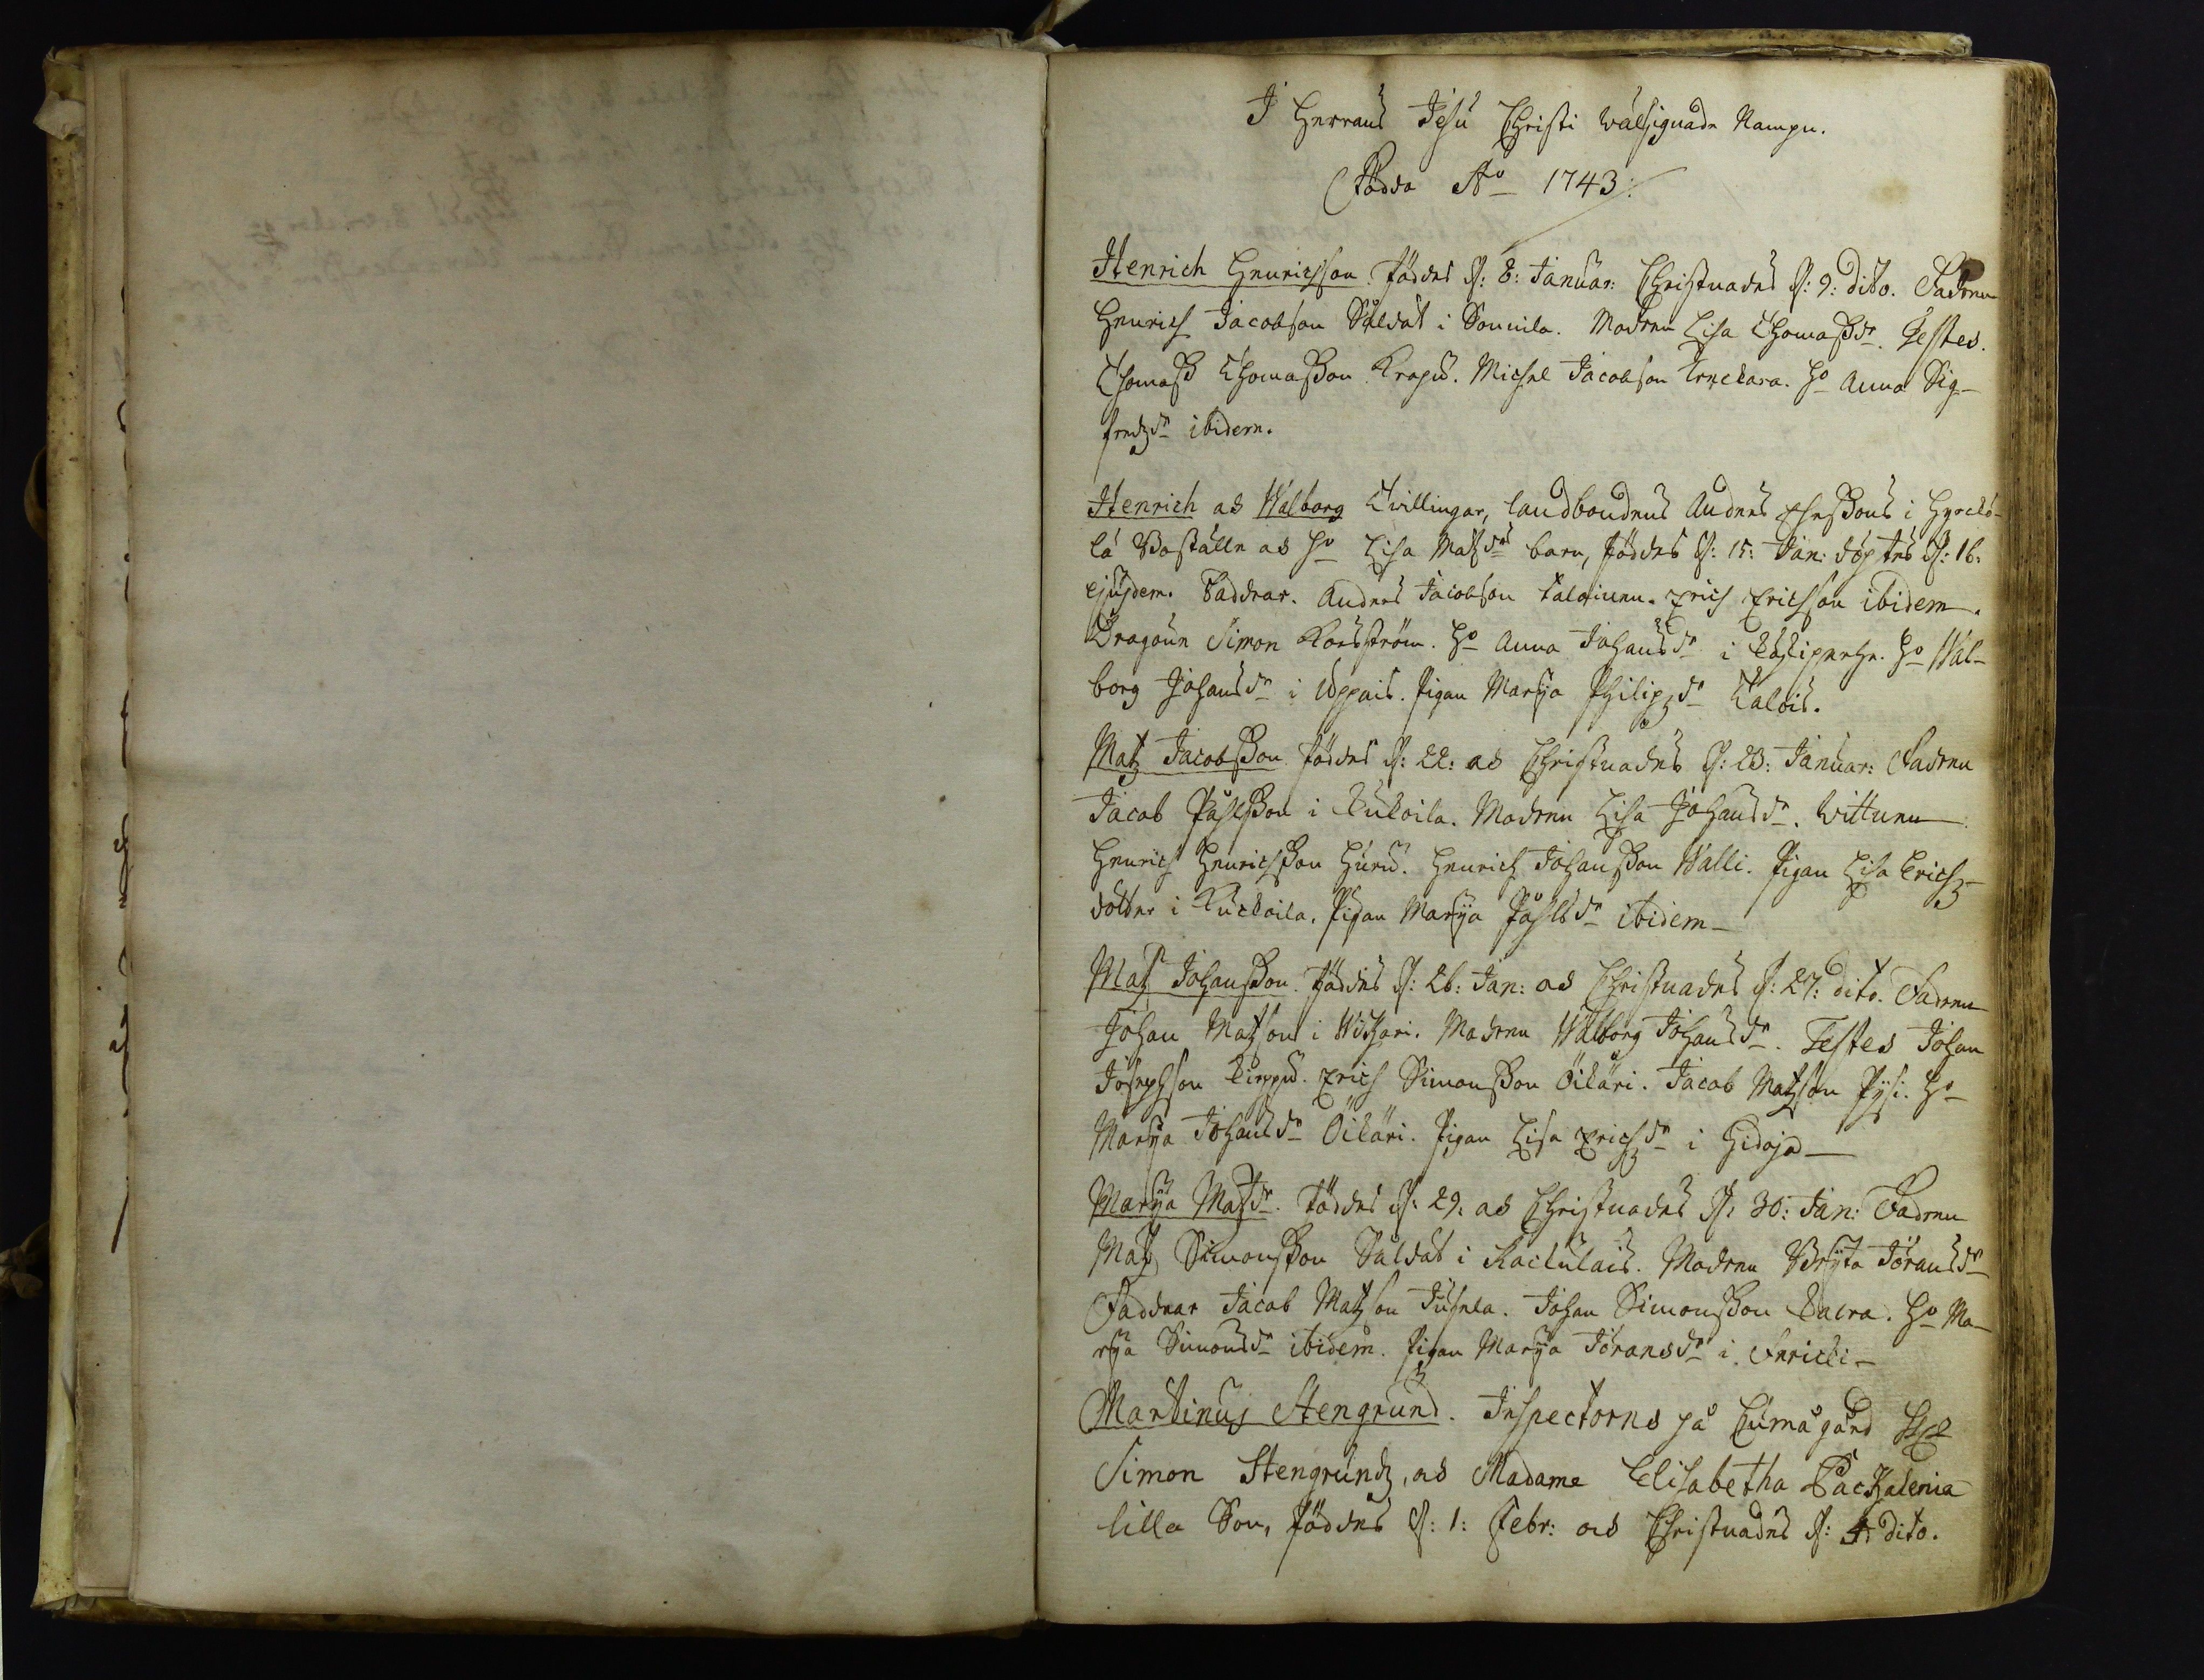 I Herrans Jesu Christi wälsignade Nampn.
Födda Aº 1743:
Henrich Henrichson föddes d: 8: Januar: Christnades d: 9: dito. Fadren
Henrich Jacobson Såldat i Sonnila. Modren Lisa Thomaßdr. Testes.
Thomaß Thomaßon Krapu. Michel Jacobson Tenckara. Ho Anna Sig-
fredzdr ibidem.
Henrich ad Walborg Tvillingar, landbondens Anders i
lä Boställe ad ho Lisa Matzdrs barn, föddes d: 15: Jan: döptes d: 16:
ejusdem. Faddrar. Anders Jacobson Erich Ericson ibidem.
Dragoun Simon Korsström. Ho Anna Johansdr i Ho Wal-
borg Johansdr i Uppais. Pigan Marÿa Philipzdr Talois.
Matz Jacobßon föddes d: 22: ad Christnades d: 23: Januar: Fadren
Jacob Påhlßon i Kukoila. Modren Lisa Johansdr. Wittnen
Henrich Henrichßon Huru. Henrich Johanßon Walli. Pigan Lisa Erichz-
dotter i Kuckoila. Pigan Marÿa Påhlsdr ibidem
Matz Johanßon. föddes d: 26: Jan: ad Christnades d: 27: dito. Fadren
Johan Matzson i Wihari. Modren Walborg Johansdr. Testes Johan
Josephson Erich Simonßon Öikäri. Jacob Matzson Pysi. Ho
Marÿa Johansdr Öikäri. Pigan Lisa Erichzdr i Hidoja
Marÿa Matzdr. föddes d: 29. ad Christnades d: 30: Jan: Fadren
Matz Simonßon Såldat i Raikulais. Modren Brÿta Jöransdr
Faddrar Jacob Matzson Jusela. Johan Simonßon Ho Ma-
rÿa Simonsdr ibidem. Pigan Marÿa Jöransdr i
Martinus Stengrund. Inspectorns på Lumågård
Simon Stengrundz, ad Madame Elisabetha Packalenia
lilla Son, föddes d: 1: Febr: ad Christnades d: 4: dito.